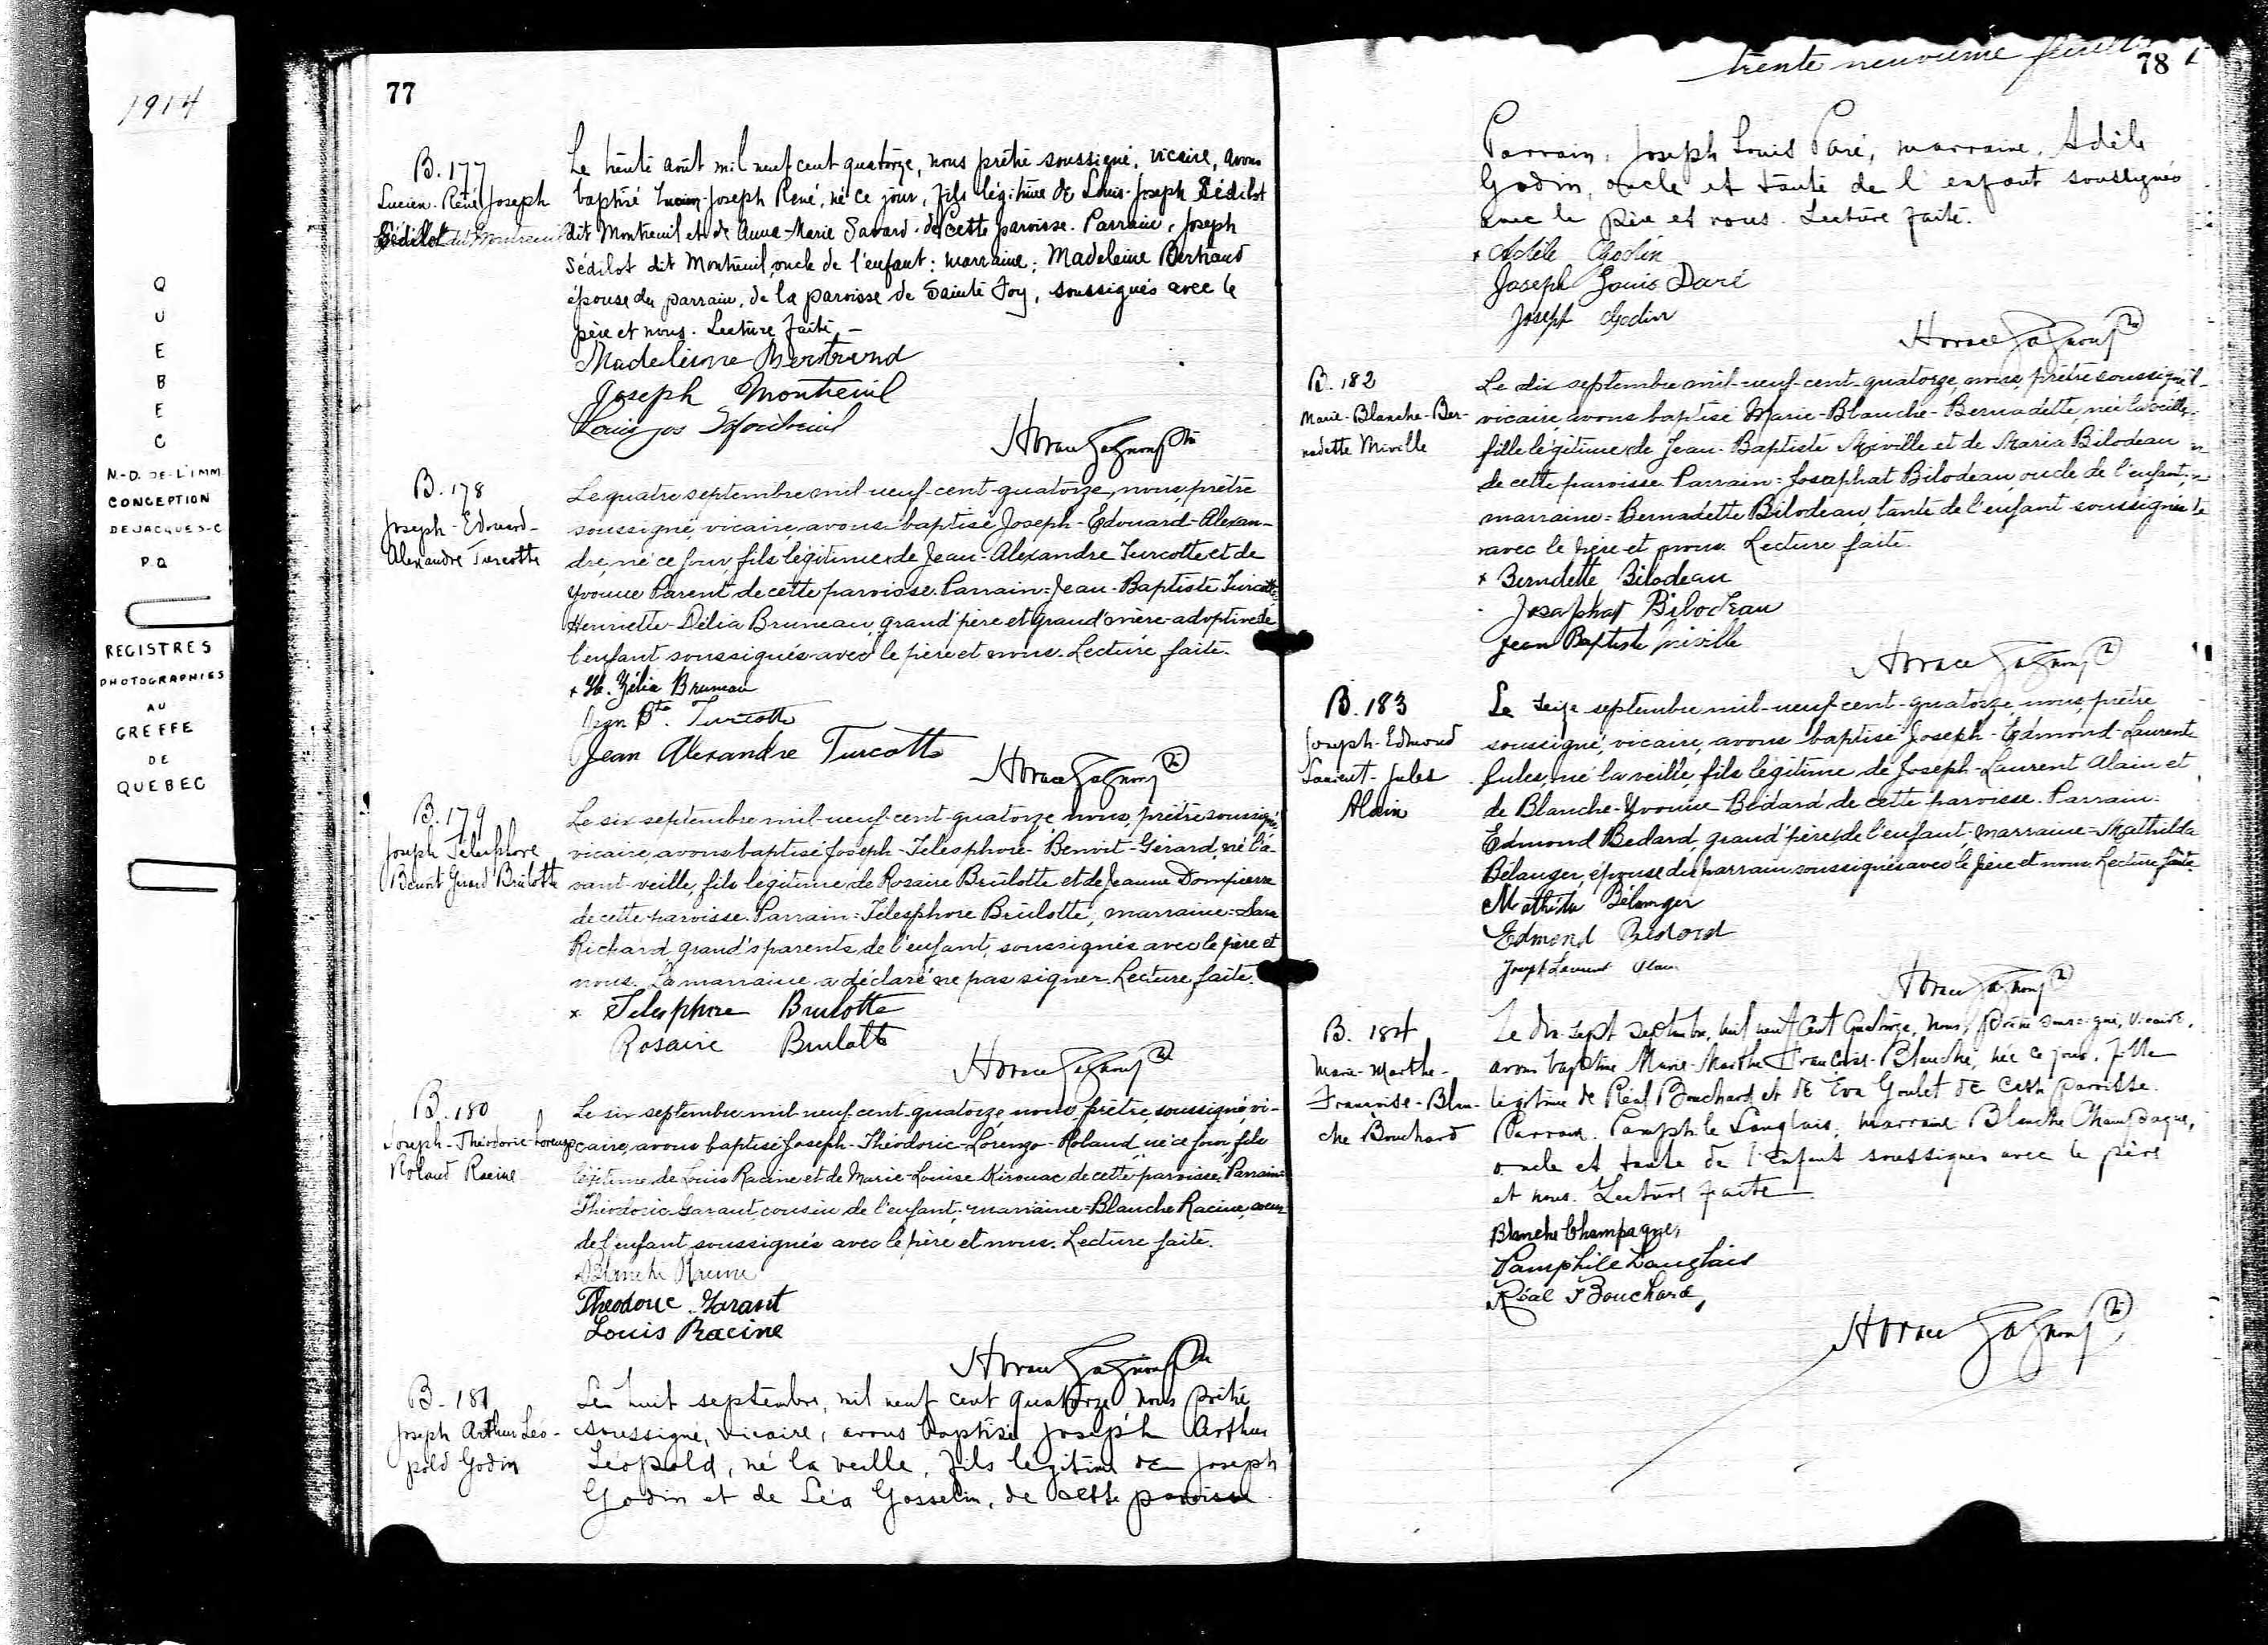 1914
QUEBEC
N.-D. DE-L'IMM.
CONCEPTION
DE JACQUES-C
P.Q
REGISTRES
PHOTOGRAPHIES
AU
GREFFE
DE
QUEBEC
77
B. 177
Lucien-René Joseph
Sédilot dit Montreuil
Le trente août mil neuf cent quatorze, nous prêtre soussigné, vicaire, avons
baptisé Lucien-Joseph René, né ce jour, fils légitime de Louis-Joseph Sédilot
dit Montreuil et de Anna-Marie Savard de cette paroisse. Parrain, Joseph
Sédilot dit Montreuil, oncle de l'enfant; marraine; Madeleine Bertrand
épouse du parrain, de la paroisse de Sainte Foy, soussignés avec le
père et nous. Lecture faite.-
Madeleine Bertrand
Joseph Montreuil
Louis Jos Montreuil
Horace Gagnon ptre
B. 178
Joseph-Edouard-
Alexandre Turcotte
Le quatre septembre mil-neuf-cent-quatorze, nous, prêtre
soussigné, vicaire, avons baptisé Joseph-Edouard-Alexan-
dre, né ce jour, fils légitime de Jean-Alexandre Turcotte et de
Yvonne Parent de cette paroisse. Parrain=Jean-Baptiste Turcotte
Henriette-Délia Bruneau, grand'père et grand'mère-adoptive de
l'enfant soussignés avec le père et nous. Lecture faite.
x H. Zélia Bruneau
Jean Bte. Turcotte
Jean Alexandre Turcotte
Horace Gagnon ptre
B. 179
Joseph Télesphore
Benoit Gérard Brûlotte
Le six septembre mil-neuf-cent-quatorze nous, prêtre soussigné,
vicaire, avons baptisé Joseph-Télesphore-Benoit-Gérard, né l'a-
vant-veille, fils légitime de Rosaire Brûlotte et de Jeanne Dompierre
de cette paroisse. Parrain=Télesphore Brûlotte, marraine=Sara
Richard grand's parents de l'enfant, soussignés avec le père et
nous. La marraine a déclaré ne pas signer. Lecture faite.
x Telesphore Brulotte
Rosaire Brulotte
Horace Gagnon ptre
B. 180
Joseph-Théodoric-Lorenzo
Roland Racine
Le six septembre mil-neuf-cent-quatorze, nous, prêtre, soussigné, vi-
caire, avons baptisé Joseph-Théodoric-Lorenzo-Roland, né ce jour, fils
légitime de Louis Racine et de Marie-Louise Kirouac de cette paroisse. Parrain=
Théodoric Garant, cousin de l'enfant, marraine=Blanche Racine, soeur
de l'enfant soussignés avec le père et nous. Lecture faite.
x Blanche Racine
Theodoric Garant
Louis Racine
Horace Gagnon ptre
B. 181
Joseph Arthur Léo-
pold Godin
Le huit septembre, mil neuf cent quatorze, nous prêtre
soussigné, vicaire, avons baptisé Joseph Arthur
Léopold, né la veille, fils légitime de Joseph
Godin et de Léa Gosselin, de cette paroisse.
trente neuvième feuillet
78
Parrain, Joseph Louis Paré, marraine, Adèle
Godin, oncle et tante de l'enfant soussignés
avec le père et nous. Lecture faite.
x Adèle Godin
Joseph Louis Paré
Joseph Godin
Horace Gagnon ptre
B. 182
Marie-Blanche-Ber-
nadette Miville
Le dix septembre mil-neuf-cent-quatorze, nous, prêtre soussigné
vicaire, avons baptisé Marie-Blanche-Bernadette née la veille,
fille légitime de Jean-Baptiste Miville et de Maria Bilodeau
de cette paroisse. Parrain=Josaphat Bilodeau, oncle de l'enfant,
marraine=Bernadette Bilodeau, tante de l'enfant soussignés
avec le père et nous. Lecture faite.
x Berndette Bilodeau
Josaphat Bilodeau
Jean Baptiste Miville
Horace Gagnon ptre
B. 183
Joseph-Edmond
Laurent-Jules
Alain
Le seize septembre mil-neuf-cent-quatorze, nous, prêtre
soussigné, vicaire, avons baptisé Joseph-Edmond-Laurent
Jules, né la veille, fils légitime de Joseph-Laurent Alain et
de Blanche-Yvonne Bédard de cette paroisse. Parrain=
Edmond Bédard, grand'père de l'enfant, marraine=Mathilda
Bélanger, épouse du parrain soussignés avec le père et nous. Lecture faite.
Mathilda Bélanger
Edmond Bedard
Joseph Laurent Alain
Horace Gagnon ptre
B. 184
Marie-Marthe-
Françoise-Blan-
che Bouchard
Le dix-sept septembre, mil neuf cent quatorze, nous, prêtre soussigné, vicaire,
avons baptisé Marie-Marthe Françoise-Blanche, née ce jour, fille
légitime de Réal Bouchard et de Eva Goulet de cette paroisse.
Parrain. Pamphile Langlais, marraine Blanche Champagne,
oncle et tante de l'enfant soussignés avec le père
et nous. Lecture faite
Blanche Champagne,
Pamphile Langlais
Réal Bouchard,
Horace Gagnon ptre